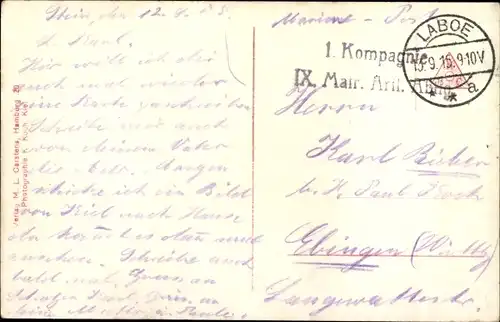 Stein, den 12. 9. 15.
L. Karl.
Hier will ich dir
auch mal wieder
eine Karte schreiben
Schreibe mir auch
von Meinem Vater
die Adr. Morgen
schicke ich ein Bild
von Kiel nach Hause
du kannst es dann auch
ansehen. Schreibe auch
bald mal. Gruss an
Karl,
Marine - Post
LABOE
15.9.15.9-10V
* a
1. Kompagnie
IX. Matr. Art. Abtlg.
Herrn
Karl
b. H. Paul Koch
Ebingen (Wttbg)
Verlag M. L. Carstens, Hamburg 20
Photographie v. Koch, Kiel